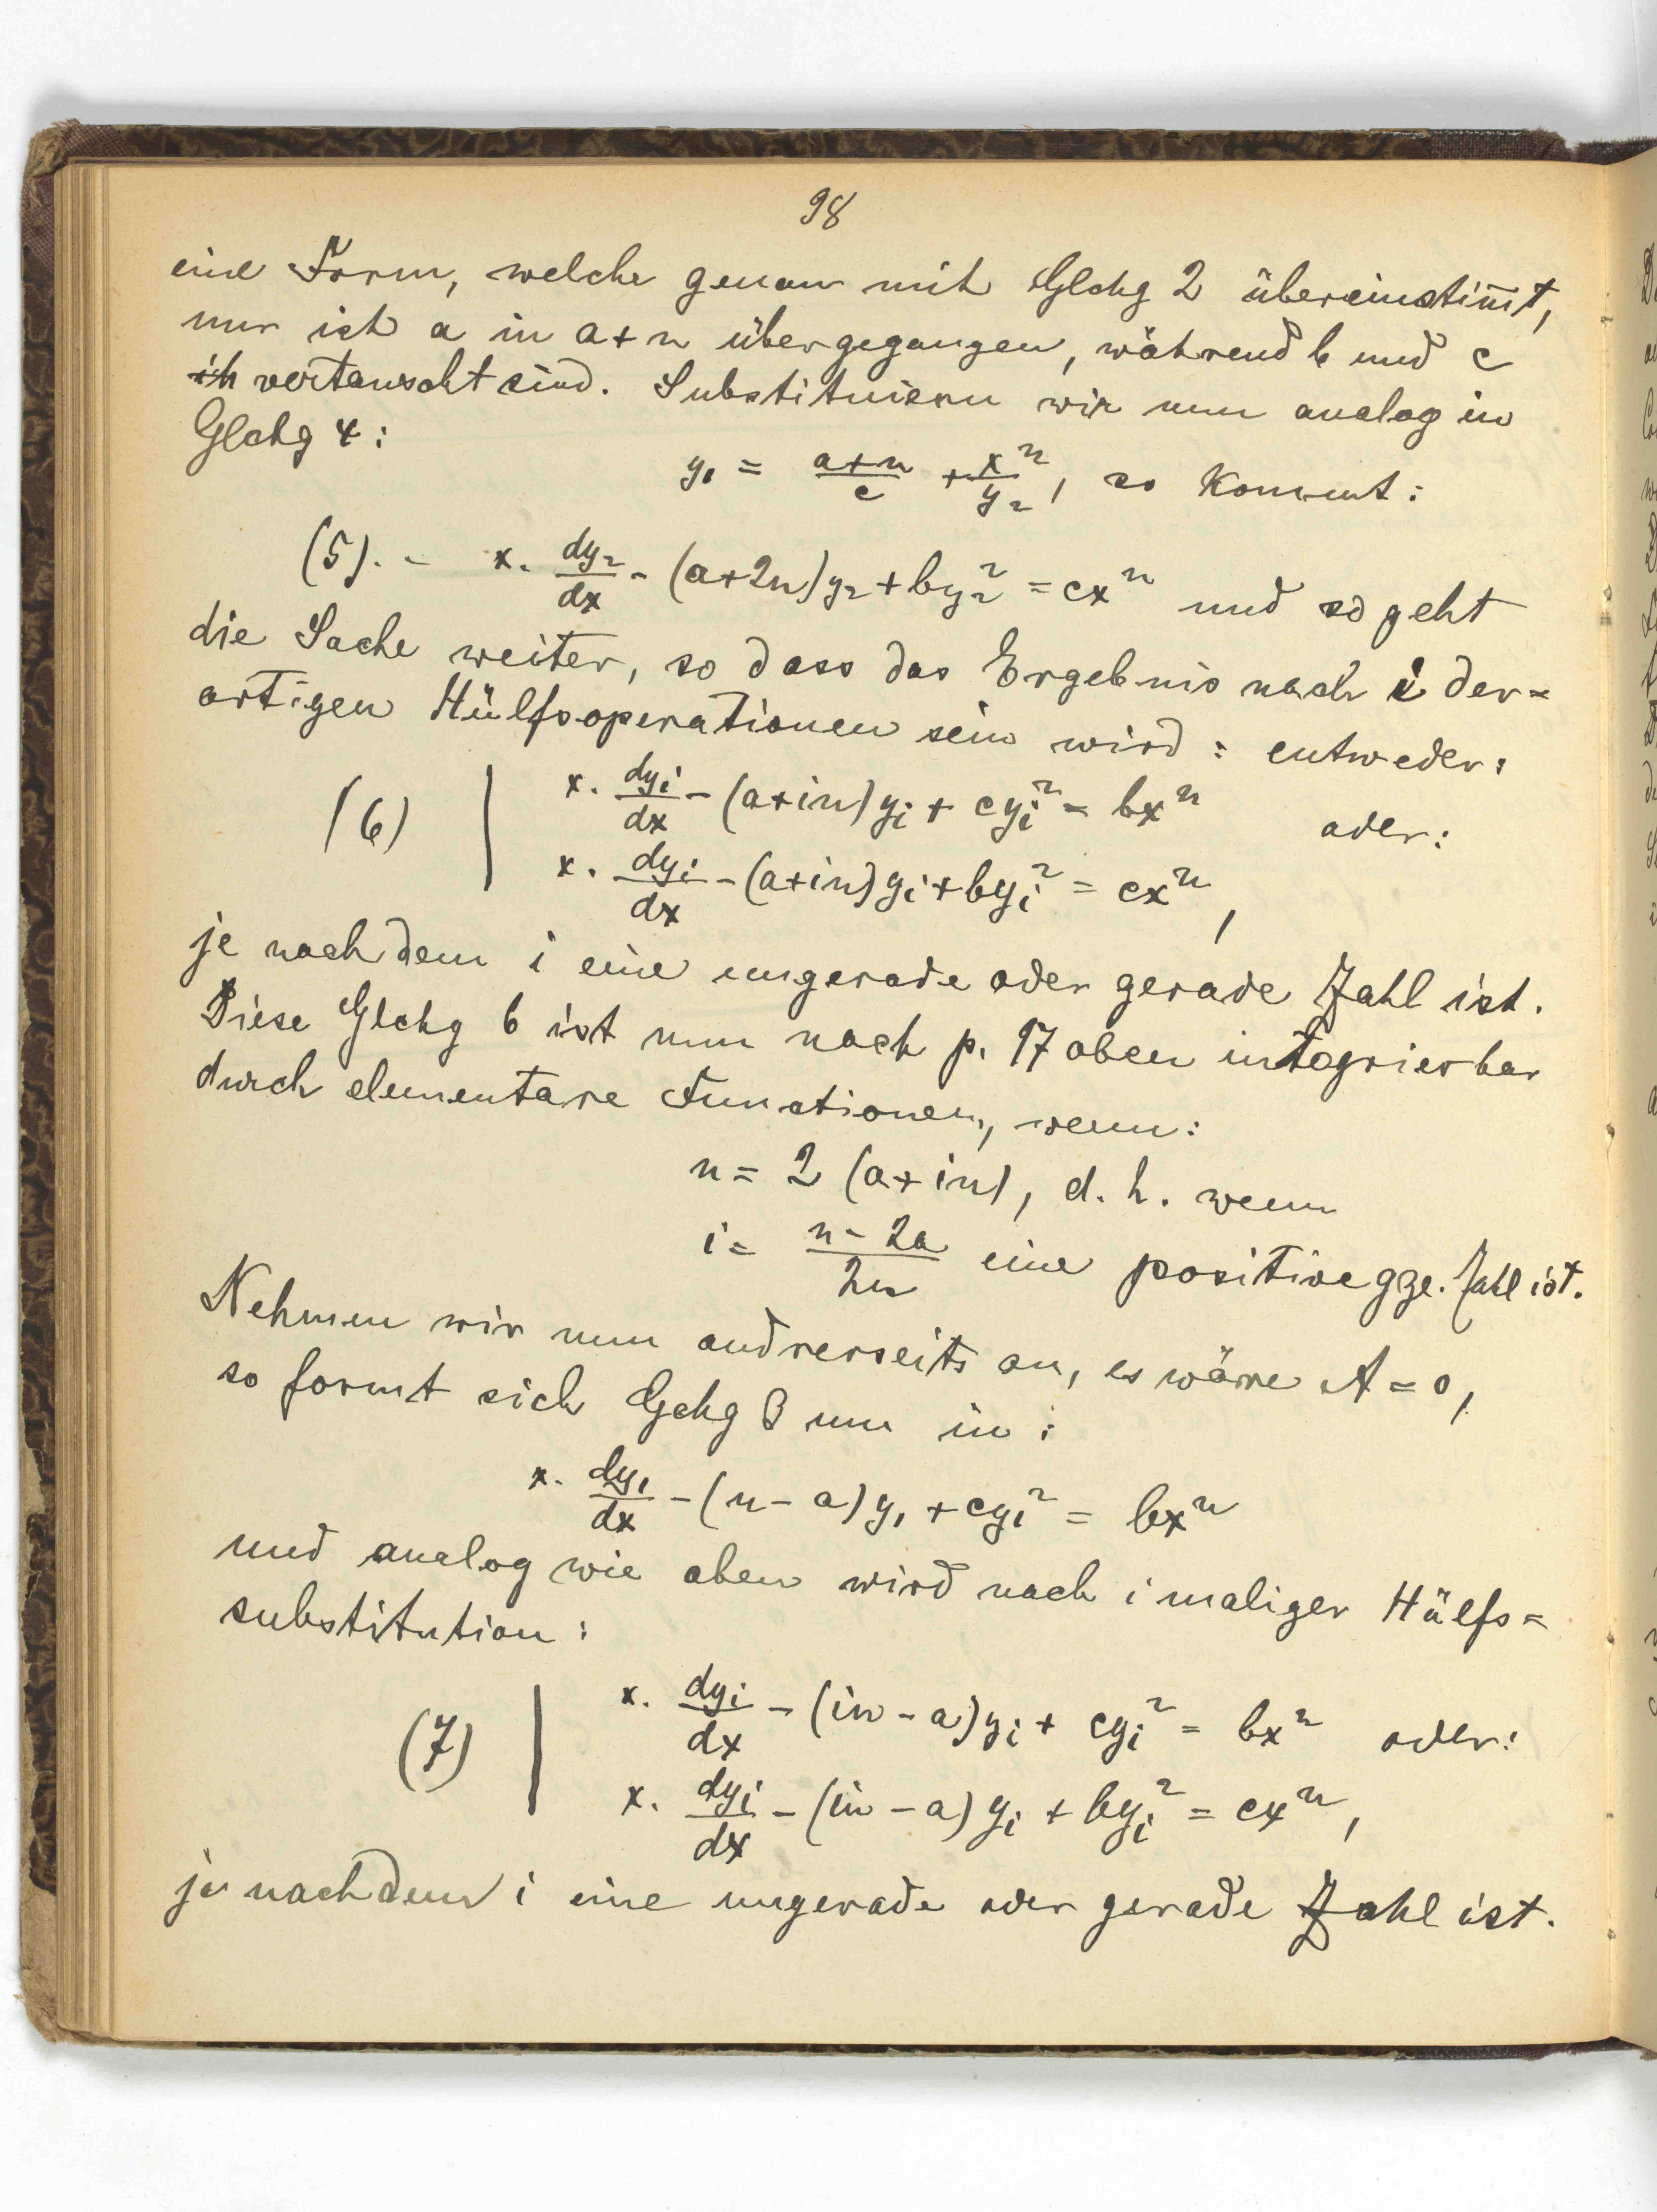 98
eine Form, welche genau mit Glchg 2 übereinstim̄t,
nur ist a in a+n übergegangen, während b und c
vertauscht sind. Substituieren wir nun analog in
Glchg 4:
y₁ = (a+n)/c + xⁿ/y₂, so kommt:
(5). - x. dy₂/dx - (a+2n)y₂ + by₂² = cxⁿ und so geht
die Sache weiter, so dass das Ergebnis nach i der=
artigen Hülfsoperationen sein wird: entweder:
(6) | x. dyᵢ/dx - (a+in)yᵢ + cyᵢ² = bxⁿ oder:
x. dyᵢ/dx - (a+in)yᵢ + byᵢ² = cxⁿ,
je nachdem i eine ungerade oder gerade Zahl ist.
Diese Glchg 6 ist nun nach p. 97 oben integrierbar
durch elementare Functionen, wenn:
n = 2 (a+in), d. h. wenn
i = (n-2a)/2n eine positive gze. Zahl ist.
Nehmen wir nun andrerseits an, es wäre A = 0,
so formt sich Glchg 3 um in:
x. dy₁/dx - (n-a)y₁ + cy₁² = bxⁿ
und analog wie oben wird nach i maliger Hülfs=
substitution:
(7) | x. dyᵢ/dx - (in-a)yᵢ + cyᵢ² = bxⁿ oder:
x. dyᵢ/dx - (in-a)yᵢ + byᵢ² = cxⁿ,
je nachdem i eine ungerade oder gerade Zahl ist.